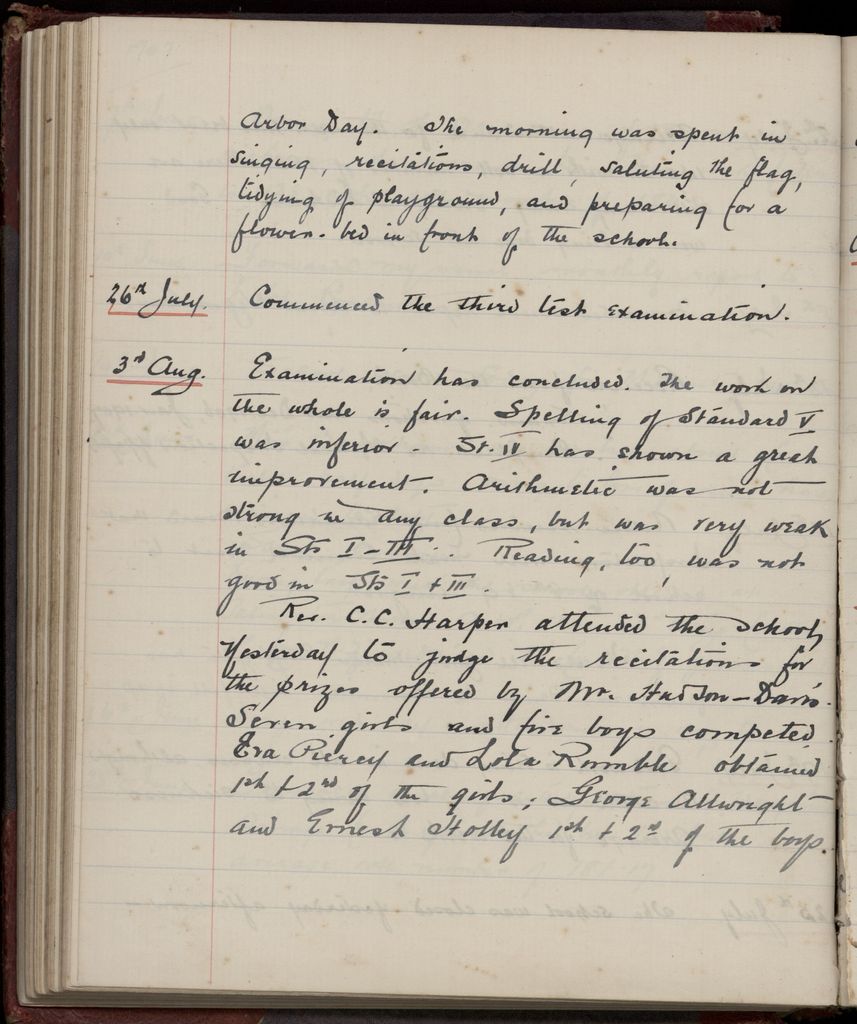 Arbor Day. The morning was spent in
singing, recitations, drill, saluting the flag,
tidying of playground, and preparing for a
flower-bed in front of the school.
26th July. Commenced the third test examination.
3rd Aug. Examination has concluded. The work on
the whole is fair. Spelling of Standard V
was inferior. St. IV has shown a great
improvement. Arithmetic was not
strong in any class, but was very weak
in Sts I-III. Reading, too, was not
good in Sts I + III.
Rev. C.C. Harper attended the school,
yesterday to judge the recitations for
the prizes offered by Mr. Hudson-Davis.
Seven girls and five boys competed.
Eva Piercy and Lola Rumble obtained
1st & 2nd of the girls; George Allwright
and Ernest Holley 1st & 2nd of the boys.